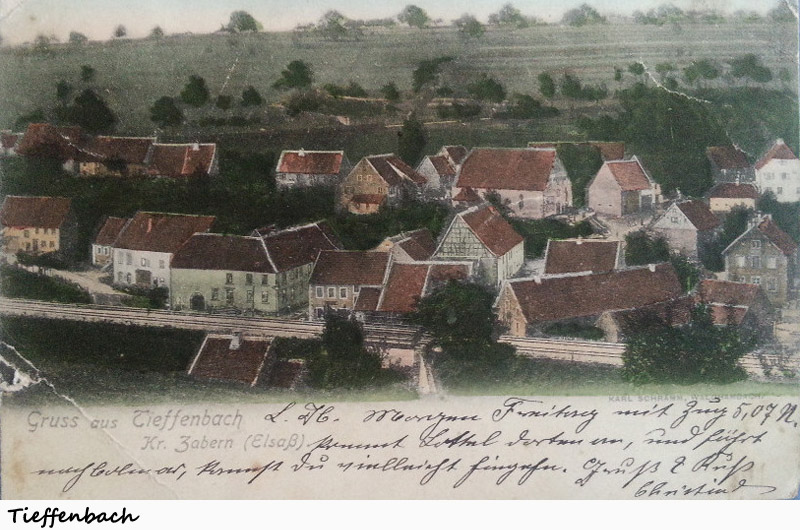 KARL SCHRAMM,
Gruss aus Tieffenbach
Kr. Zabern (Elsaß)
L. Db. Morgen Freitag mit Zug 5,07 N.
kommt Lottel dorten an, und fährt
nach Colmar, kannst Du vielleicht hingehn. Gruß & Kuß
Tieffenbach